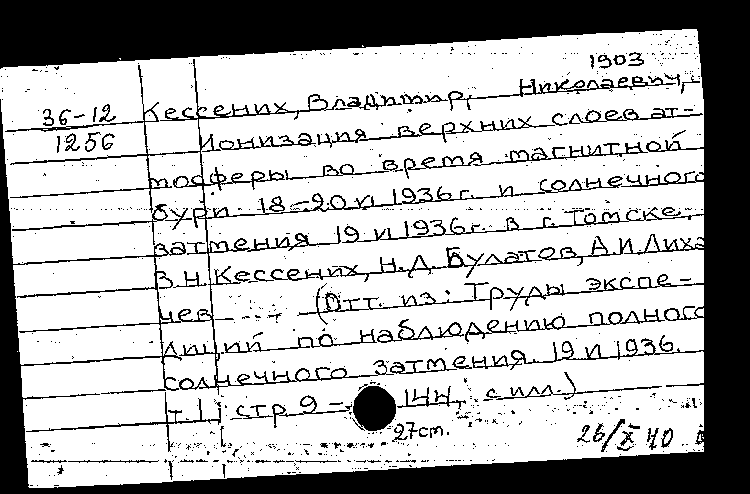 1903
36-12 Кессених, Владимир, Николаевич,
1256 Ионизация верхних слоев ат-
мосферы во время магнитной
бури 18-20 VI 1936 г. и солнечного
затмения 19 VI 1936 г. в г. Томске.
В.Н. Кессених, Н.Д. Булатов, А.И. Лиха
чев (Отт. из: Труды экспе-
диций по наблюдению полного
солнечного затмения. 19 VI 1936.
т. 1, стр 9 - 144, с илл.)
27 cm. 26/X 40